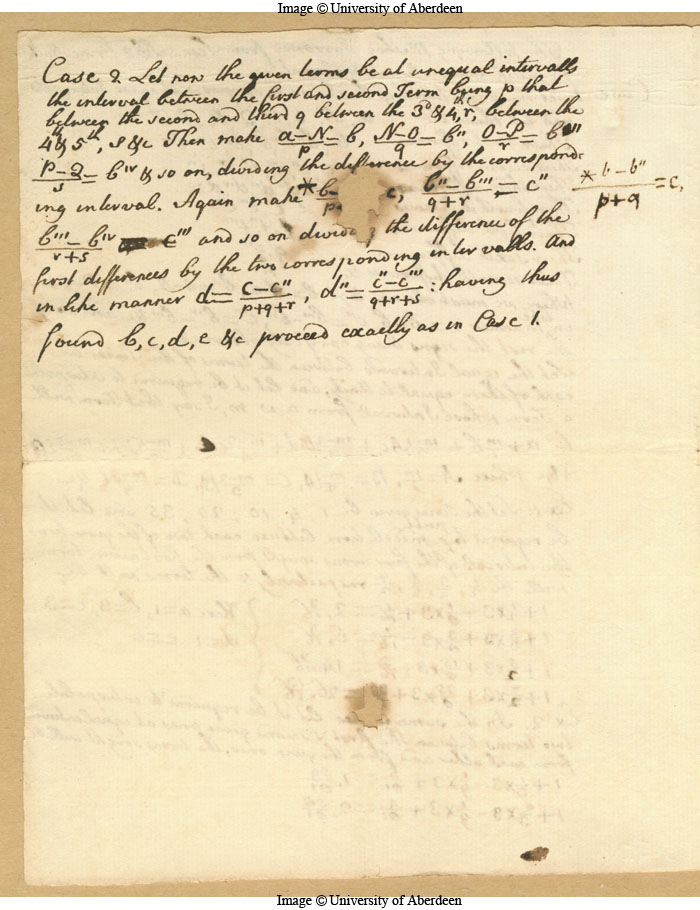 Image © University of Aberdeen
Case 2 Let now the given terms be at unequal intervalls
the interval between the first and second Term being p that
between the second and third q between the 3d & 4th, r, between the
4th & 5th, s &c Then make a-N/p = b, N-O/q = b", O-P/r = b'''
P-Q/s = b^iv & so on, dividing the difference by the correspond=
ing interval. Again make * b c, b"-b'''/q+r = c" * b-b"/p+q = c,
b'''-b^iv/r+s c''' and so on divid the difference of the
first differences by the two corresponding intervalls. And
in like manner d = c-c"/p+q+r, d" = c"-c'''/q+r+s : having thus
found b, c, d, e &c proceed exactly as in Case 1.
Image © University of Aberdeen